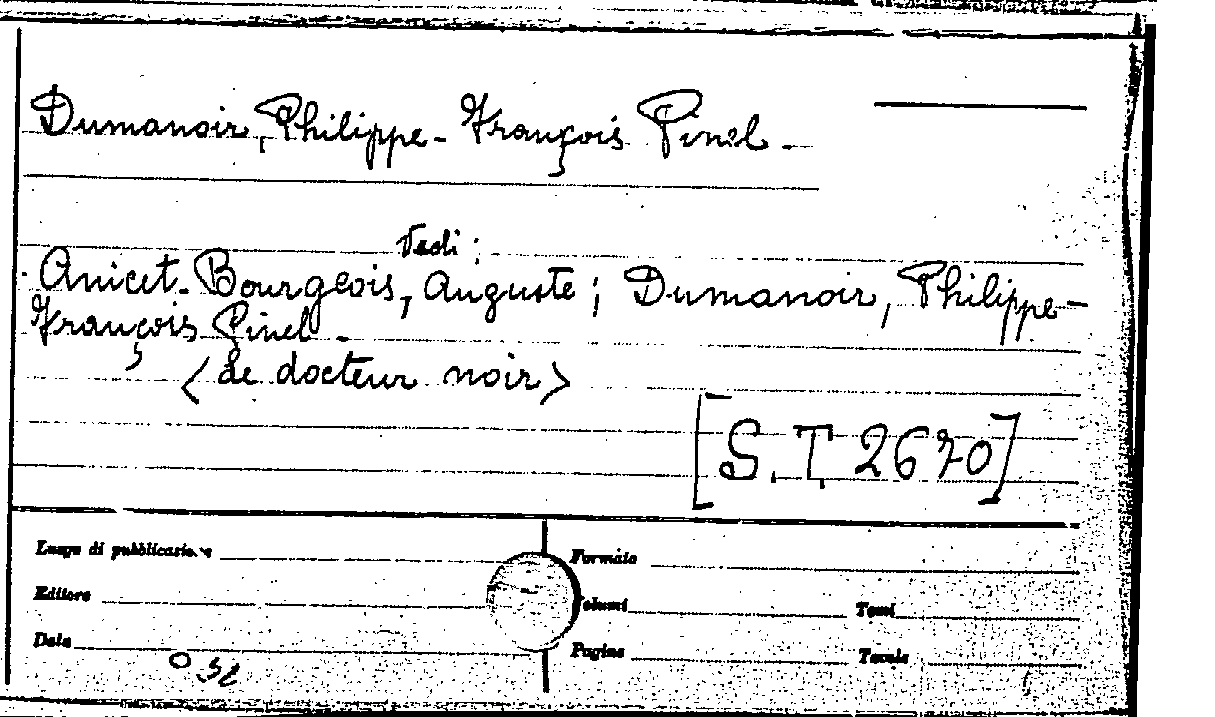 Dumanoir, Philippe-François Pinel.
Vedi:
Anicet-Bourgeois, Auguste; Dumanoir, Philippe-
François Pinel.
<Le docteur noir>
[S.T. 2670]
Luogo di pubblicazione Formato
Editore Volumi Tomi
Data Pagine Tavole